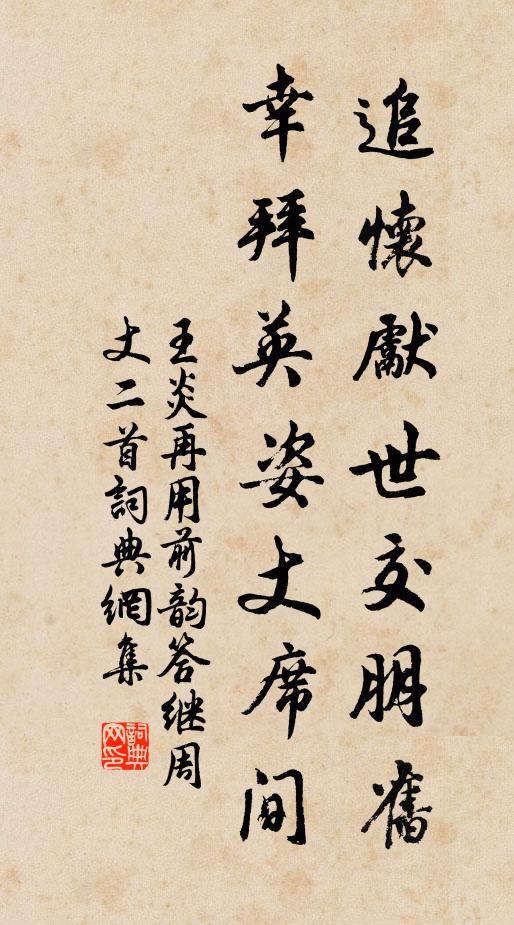 追懷獻世交朋舊
幸拜英姿丈席间
王炎再用前韵答继周
丈二首詞典網集
詞典网印